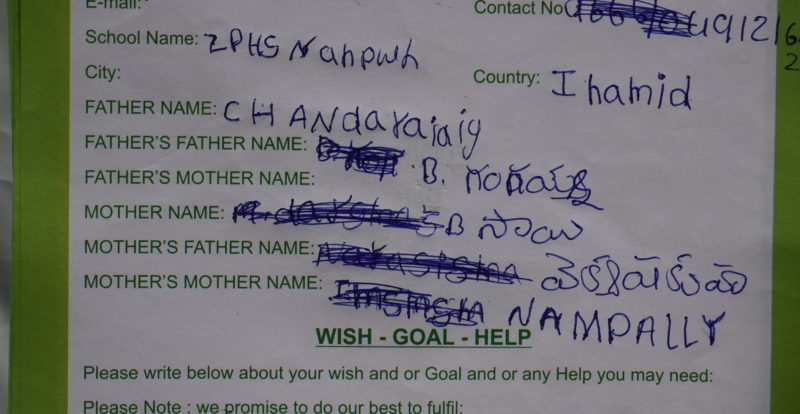 E-mail:
Contact No 4912
School Name: ZPHS Nanpwh
City:
Country: I hamid
FATHER NAME: CHANdaraiaiy
FATHER'S FATHER NAME:
FATHER'S MOTHER NAME: B.
MOTHER NAME: B సాయి
MOTHER'S FATHER NAME:
MOTHER'S MOTHER NAME: NAMPALLY
WISH - GOAL - HELP
Please write below about your wish and or Goal and or any Help you may need:
Please Note : we promise to do our best to fulfil: